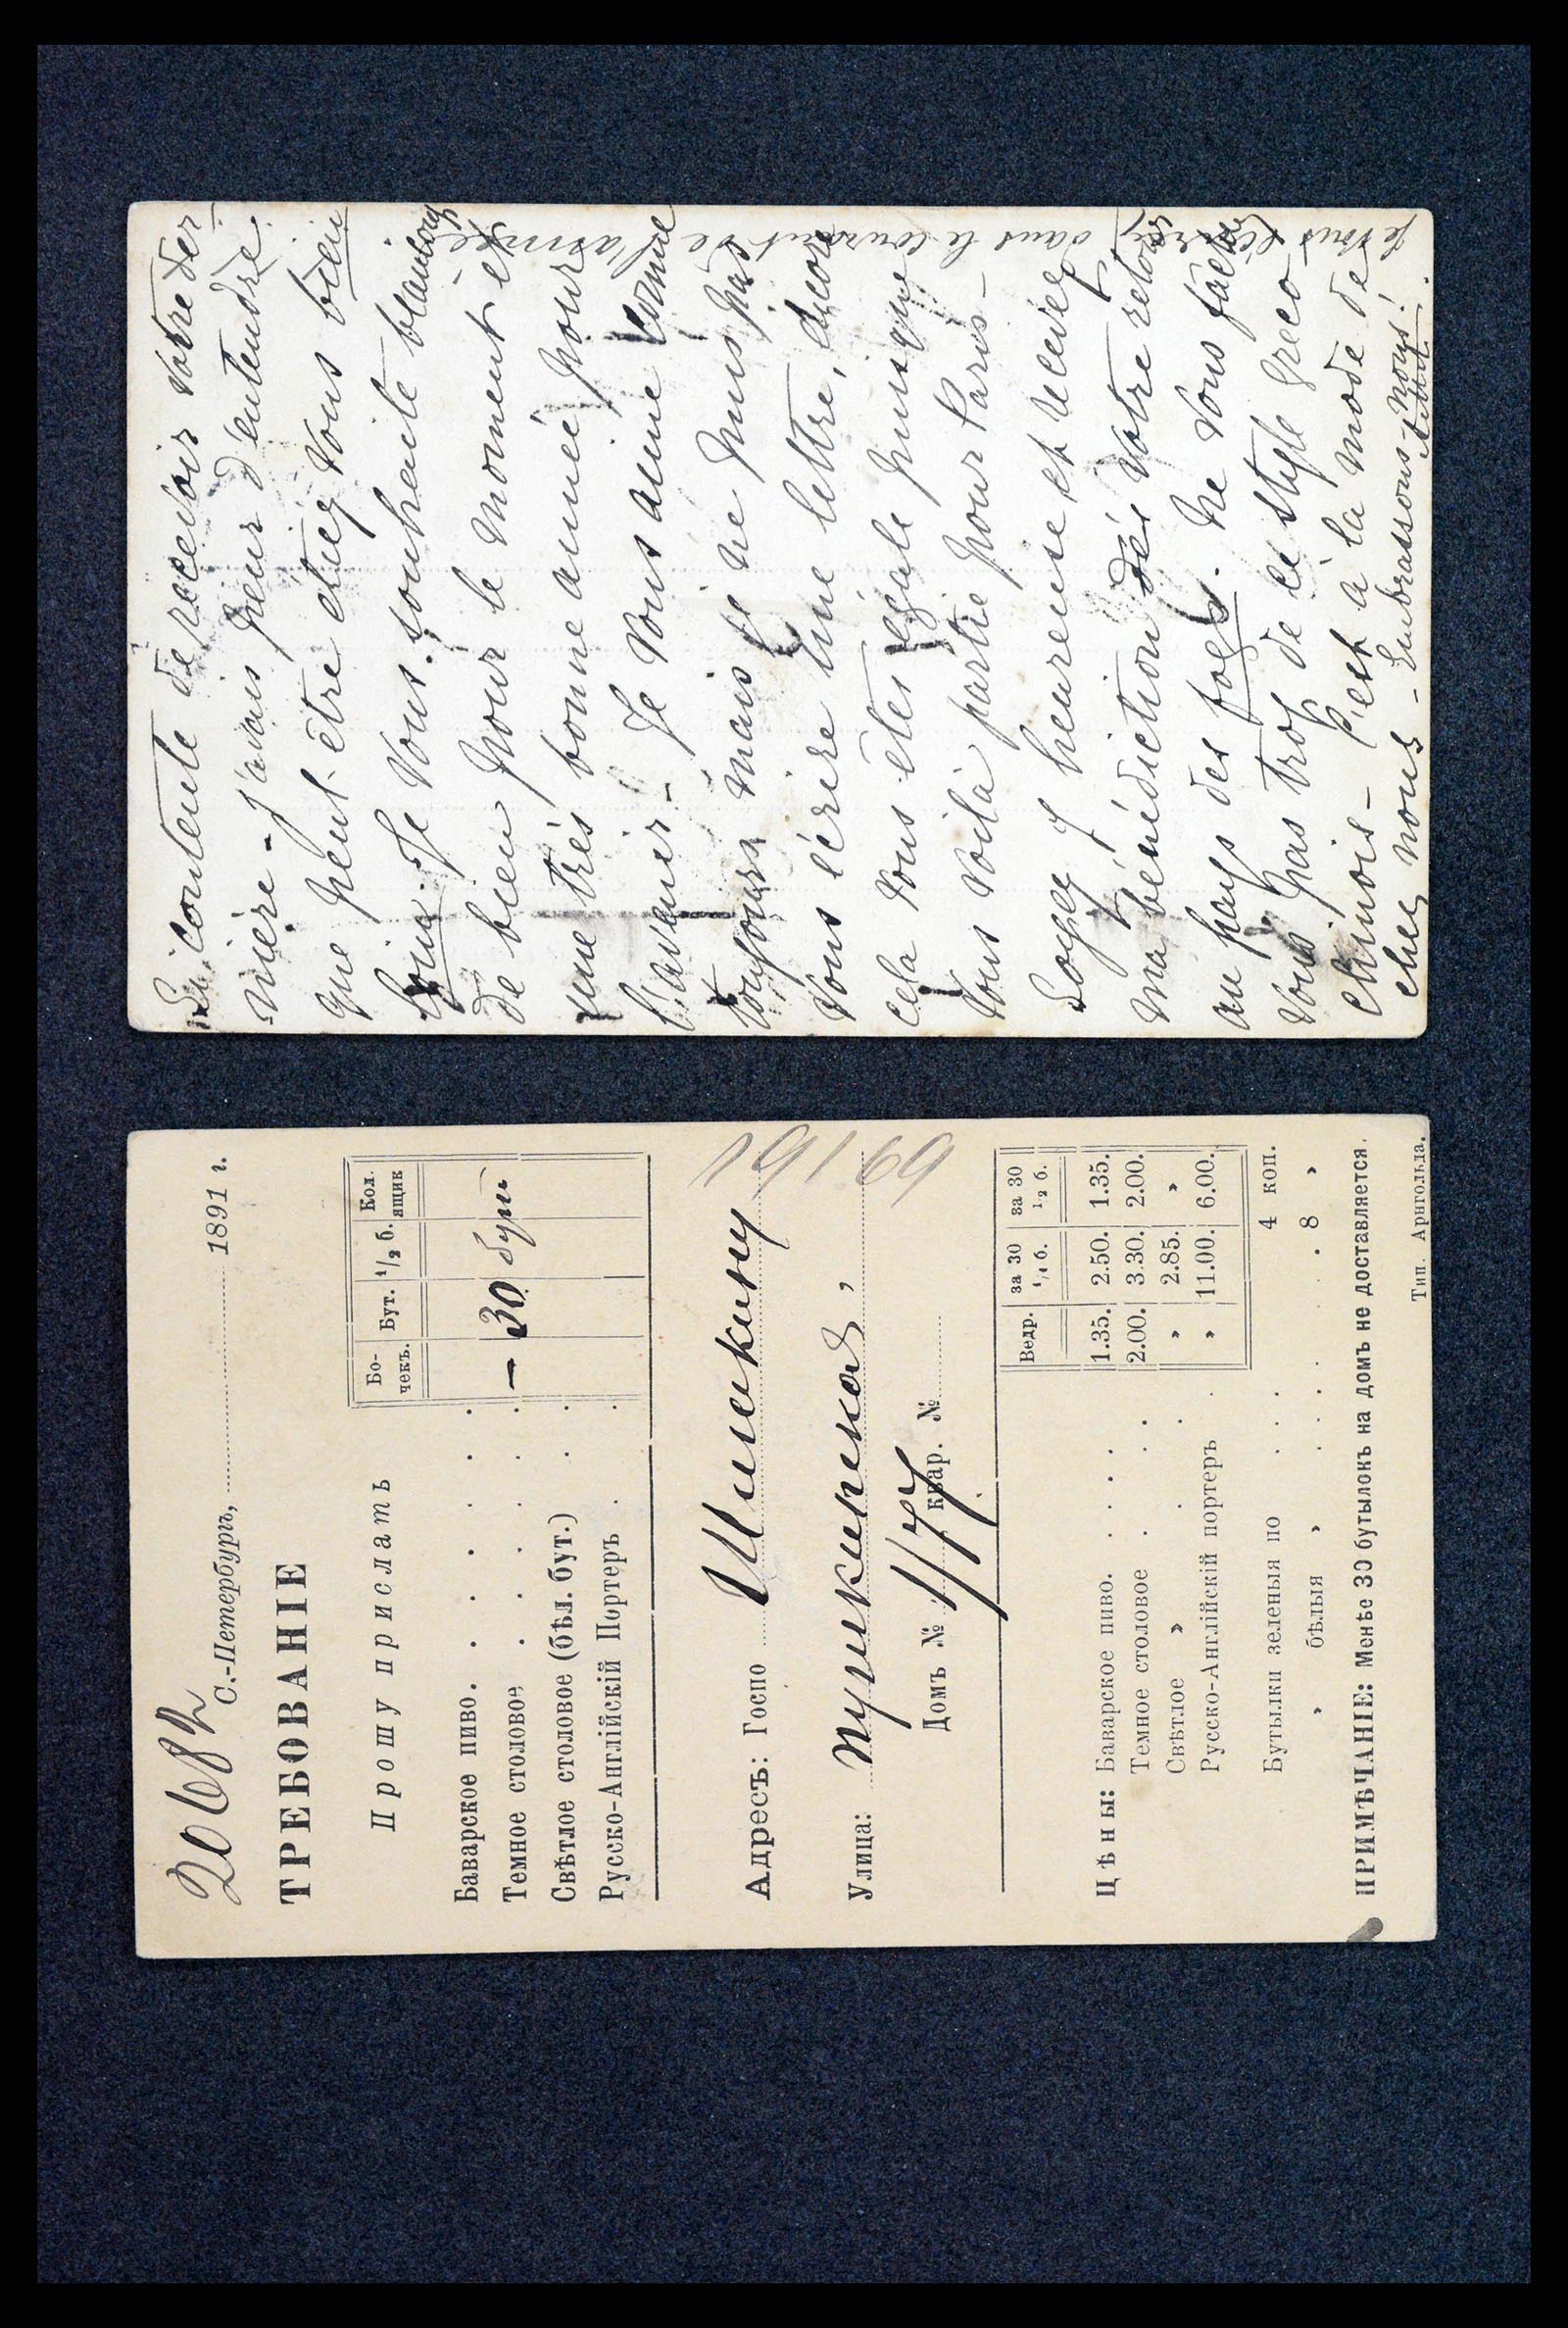 Si contente de recevoir votre der-
nière - J'avais peur d'entendre
que peut-être étiez vous bien
loin. Je vous souhaite beaucoup
de bien pour le moment et
une très bonne année pour
l'avenir - Je vous aime comme
toujours mais je ne puis pas
vous écrire une lettre, encore
cela vous êtes égale puisque
vous voilà partie pour Paris -
Soyez y heureuse et recevez
ma bénédiction dès votre retour
au pays des fogs. Ne vous fâchez
vous pas trop de ce style greco
chinois - C'est à la mode de
chez nous - Embrassons-nous!
Je vous écrirai dans le courant de l'année
20682
С.-Петербургъ, 1891 г.
ТРЕБОВАНІЕ
Прошу прислать
Бо-чекъ. Бут. 1/2 б. Кол. ящик
Баварское пиво.
Темное столовое — 30 бут
Свѣтлое столовое (бѣл. бут.)
Русско-Англійскій Портеръ
19169
Адресъ: Госпо Шишкину
Улица: Пушкинская,
Домъ № 1/77 квар. №
Ведр. за 30 1/1 б. за 30 1/2 б.
Цѣны: Баварское пиво. 1.35. 2.50. 1.35.
Темное столовое 2.00. 3.30. 2.00.
Свѣтлое » » 2.85. »
Русско-Англійскій портеръ » 11.00. 6.00.
Бутылки зеленыя по 4 коп.
» бѣлыя » 8 »
ПРИМѢЧАНІЕ: Менѣе 30 бутылокъ на домъ не доставляется.
Тип. Арнгольда.